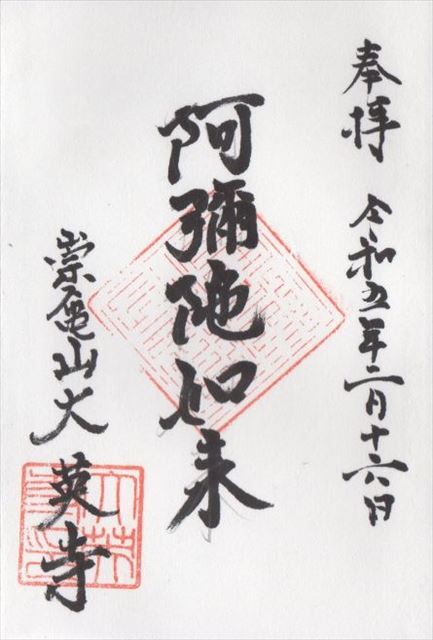 奉拝 令和五年二月十六日
阿彌陀如来
崇亀山大英寺